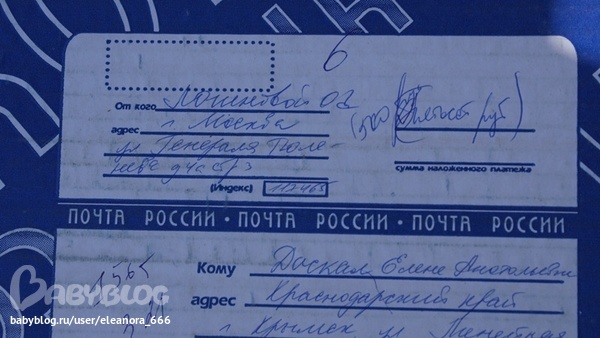 6
От кого Логиновой О.В.
адрес г. Москва
ул Генерала Тюле-
нева
(Индекс) 117465
(500 пятьсот руб)
сумма наложенного платежа
ПОЧТА РОССИИ • ПОЧТА РОССИИ • ПОЧТА РОССИИ
1565
Кому Доскал Елене Анатольевне
адрес Краснодарский край
г. Крымск ул Линейная
BABYBLOG
babyblog.ru/user/eleanora_666